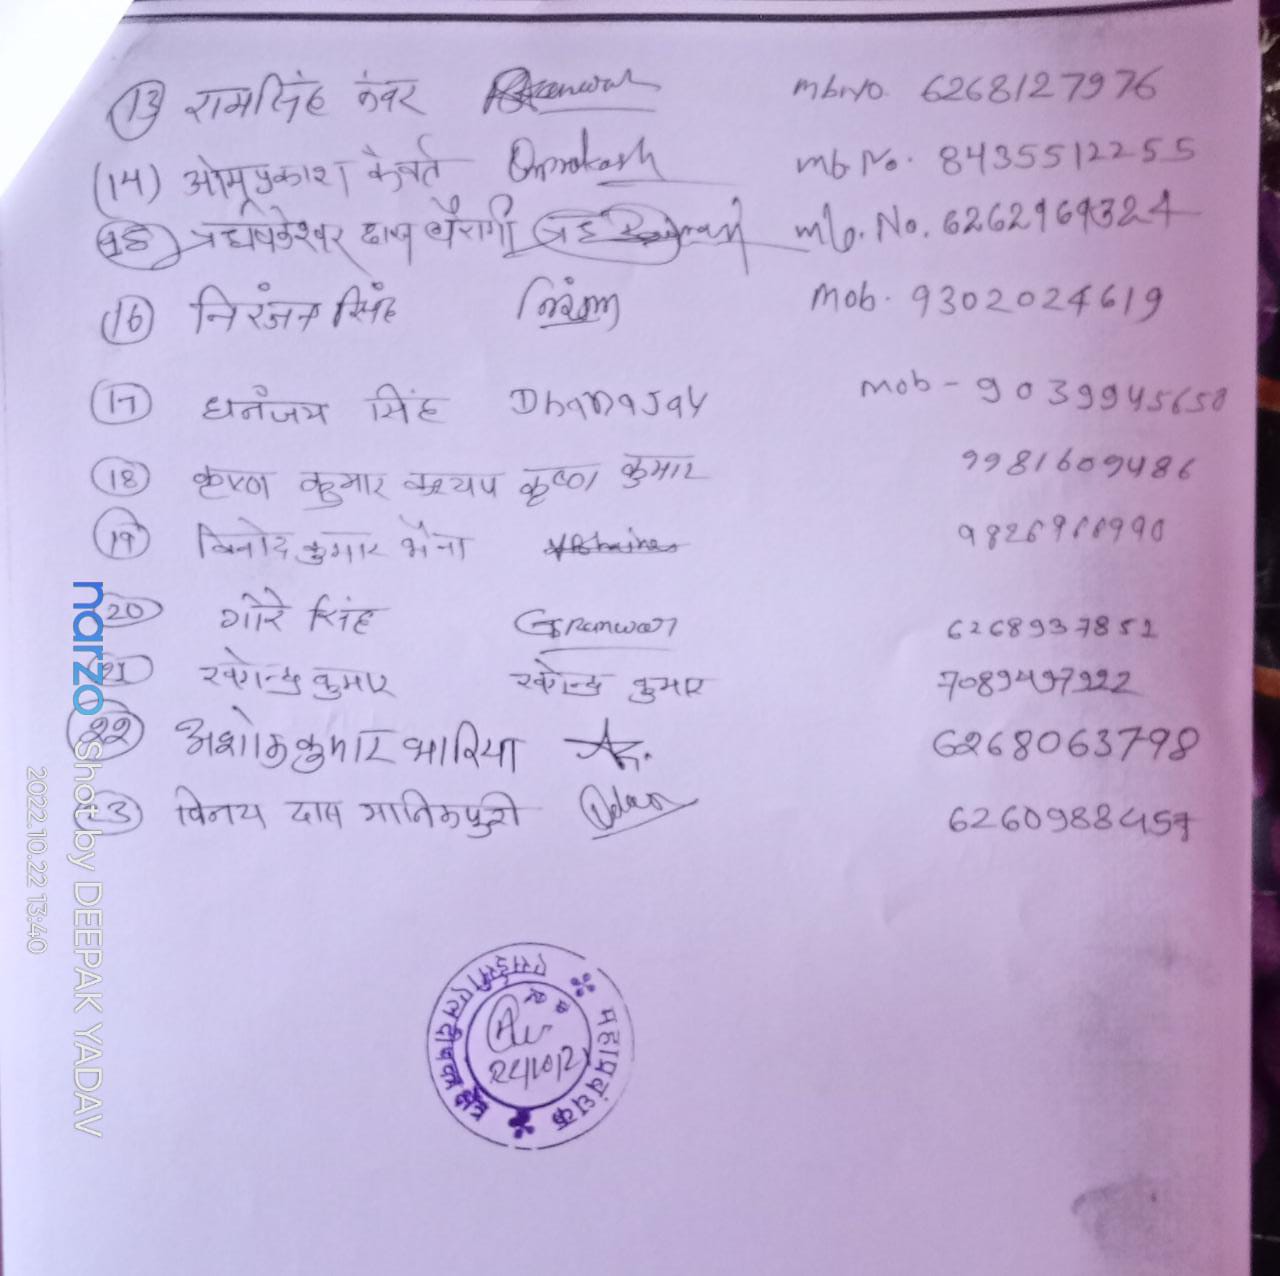 (13) रामसिंह कंवर Rkanwar mb no. 6268127976
(14) ओमप्रकाश कैवर्त Omprakash mb No. 8435512255
(15) दास वैरागी mb. No. 6262969324
(16) निरंजन सिंह निरंजन mob. 9302024619
(17) धनंजय सिंह Dhananjay mob - 9039945658
(18) कृष्ण कुमार कश्यप कृष्ण कुमार 9981609486
(19) विनोद कुमार भैना VBhaina
(20) गोरे सिंह GSKanwar 6268937852
(21) कुमार कुमार 7089497922
(22) अशोक कुमार भारिया AK. 6268063798
(23) विनय दास मानिकपुरी 6260988457
महाप्रबंधक
एसईसीएल दीपका क्षेत्र
narzo Shot by DEEPAK YADAV
2022.10.22 13:40